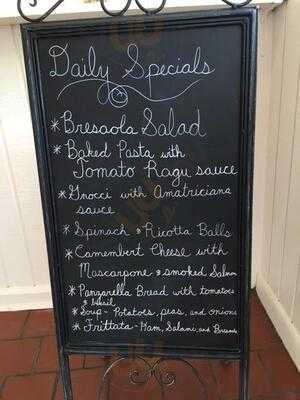 Daily Specials
* Bresaola Salad
* Baked Pasta with
Tomato Ragu sauce
* Gnocci with Amatriciana
sauce
* Spinach & Ricotta Balls
* Camembert Cheese with
Mascarpone & smoked Salmon
* Panzarella Bread with tomatoes
& basil
* Soup - Potatoes, peas, and onions
* Frittata - Ham, Salami, and